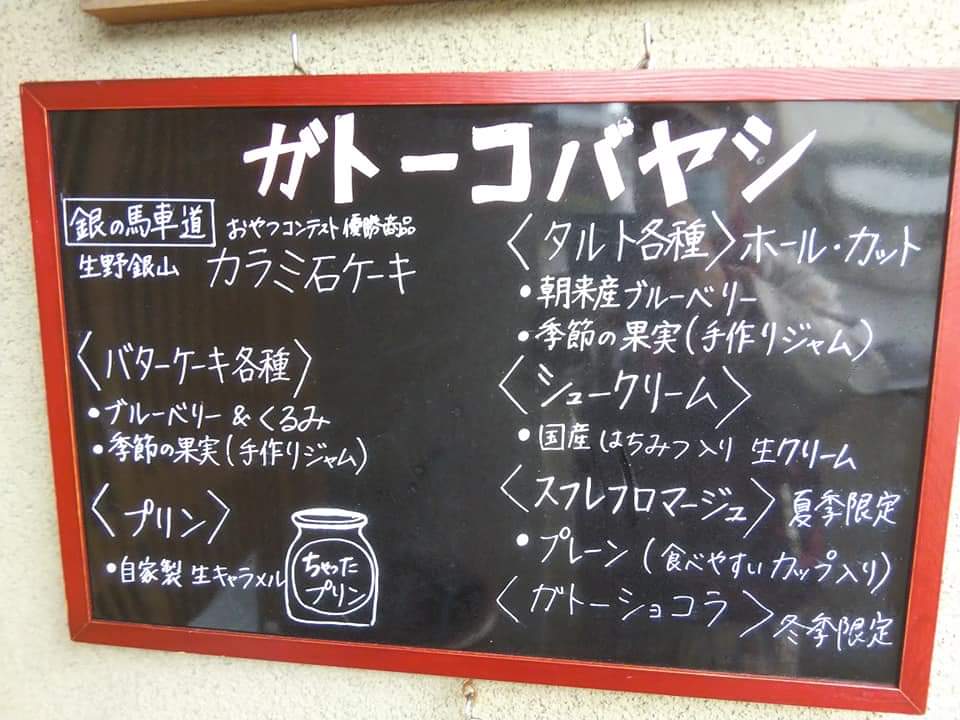 ガトーコバヤシ
銀の馬車道 おやつコンテスト優勝商品
生野銀山 カラミ石ケーキ
〈バターケーキ各種〉
・ブルーベリー & くるみ
・季節の果実(手作りジャム)
〈プリン〉
・自家製 生キャラメル
ちゃった
プリン
〈タルト各種〉ホール・カット
・朝来産ブルーベリー
・季節の果実(手作りジャム)
〈シュークリーム〉
・国産 はちみつ入り 生クリーム
〈スフレフロマージュ〉夏季限定
・プレーン (食べやすいカップ入り)
〈ガトーショコラ〉冬季限定